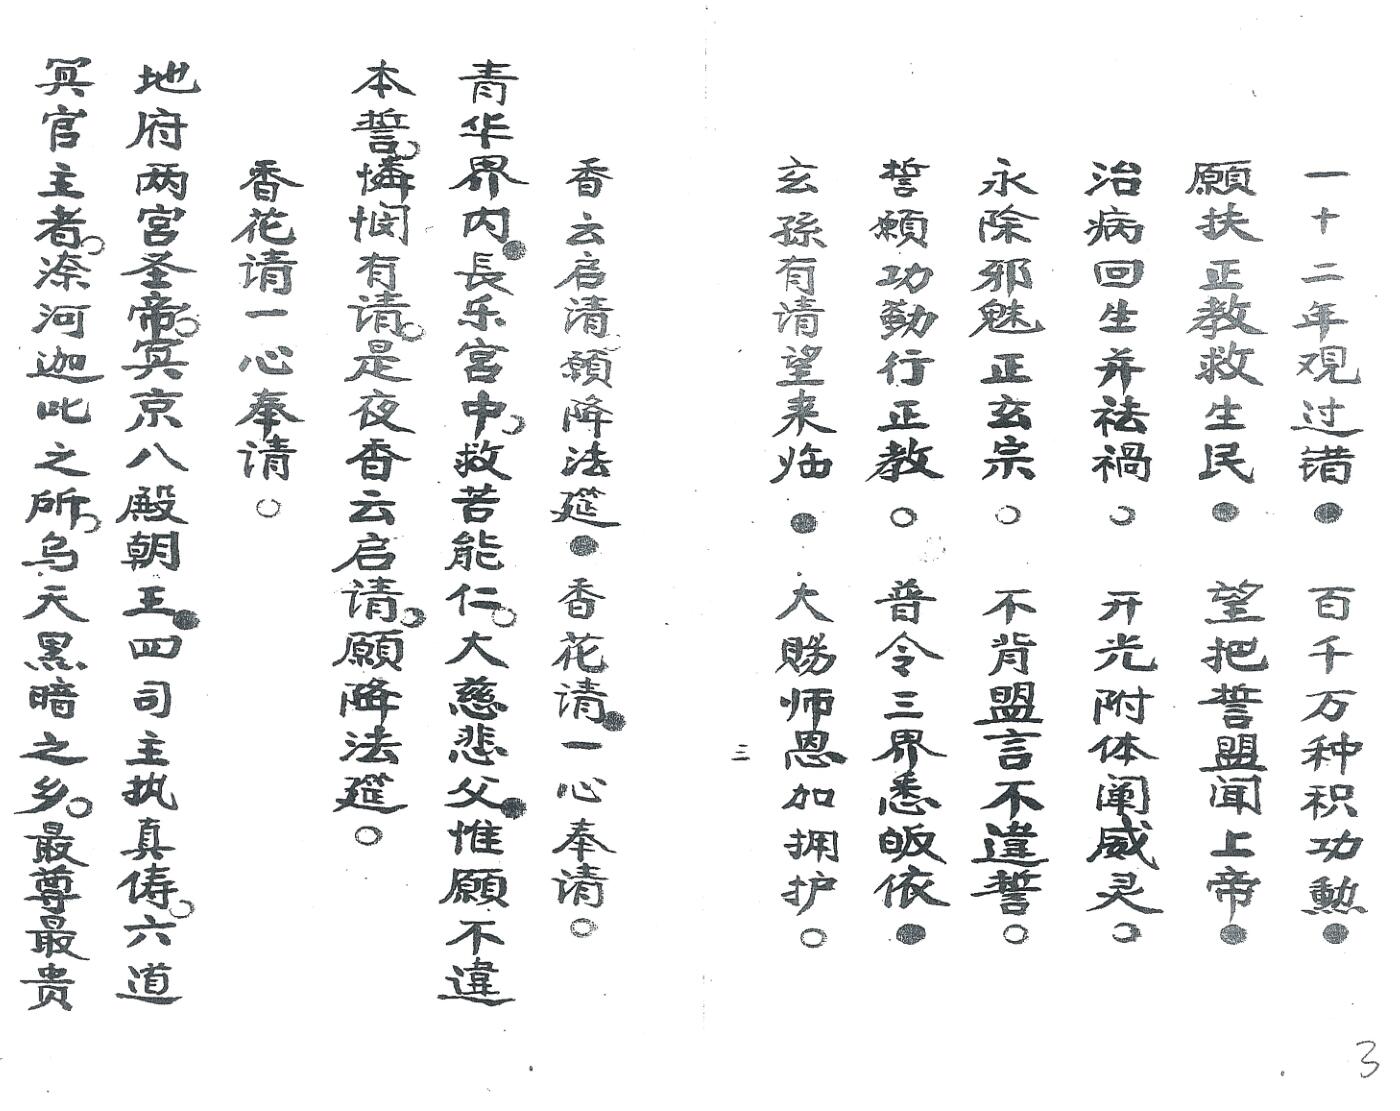 一十二年观过错●百千万种积功勲●
願扶正教救生民●望把誓盟闻上帝●
治病回生并祛禍○开光附体阐威灵○
永除邪魅正玄宗○不背盟言不違誓○
誓願功勤行正教○普令三界悉皈依●
玄孫有请望来临●大赐师恩加拥护○
三
香云启请願降法筵●香花请●一心奉请○
青华界内●長乐宫中○救苦能仁○大慈悲父●惟願不違
本誓○憐悯有请○是夜香云启请○願降法筵○
香花请一心奉请○
地府两宫圣帝○冥京八殿朝王●四司主执真俦○六道
冥官主者○渿河迦叱之所○乌天黑暗之乡○最尊最贵
3